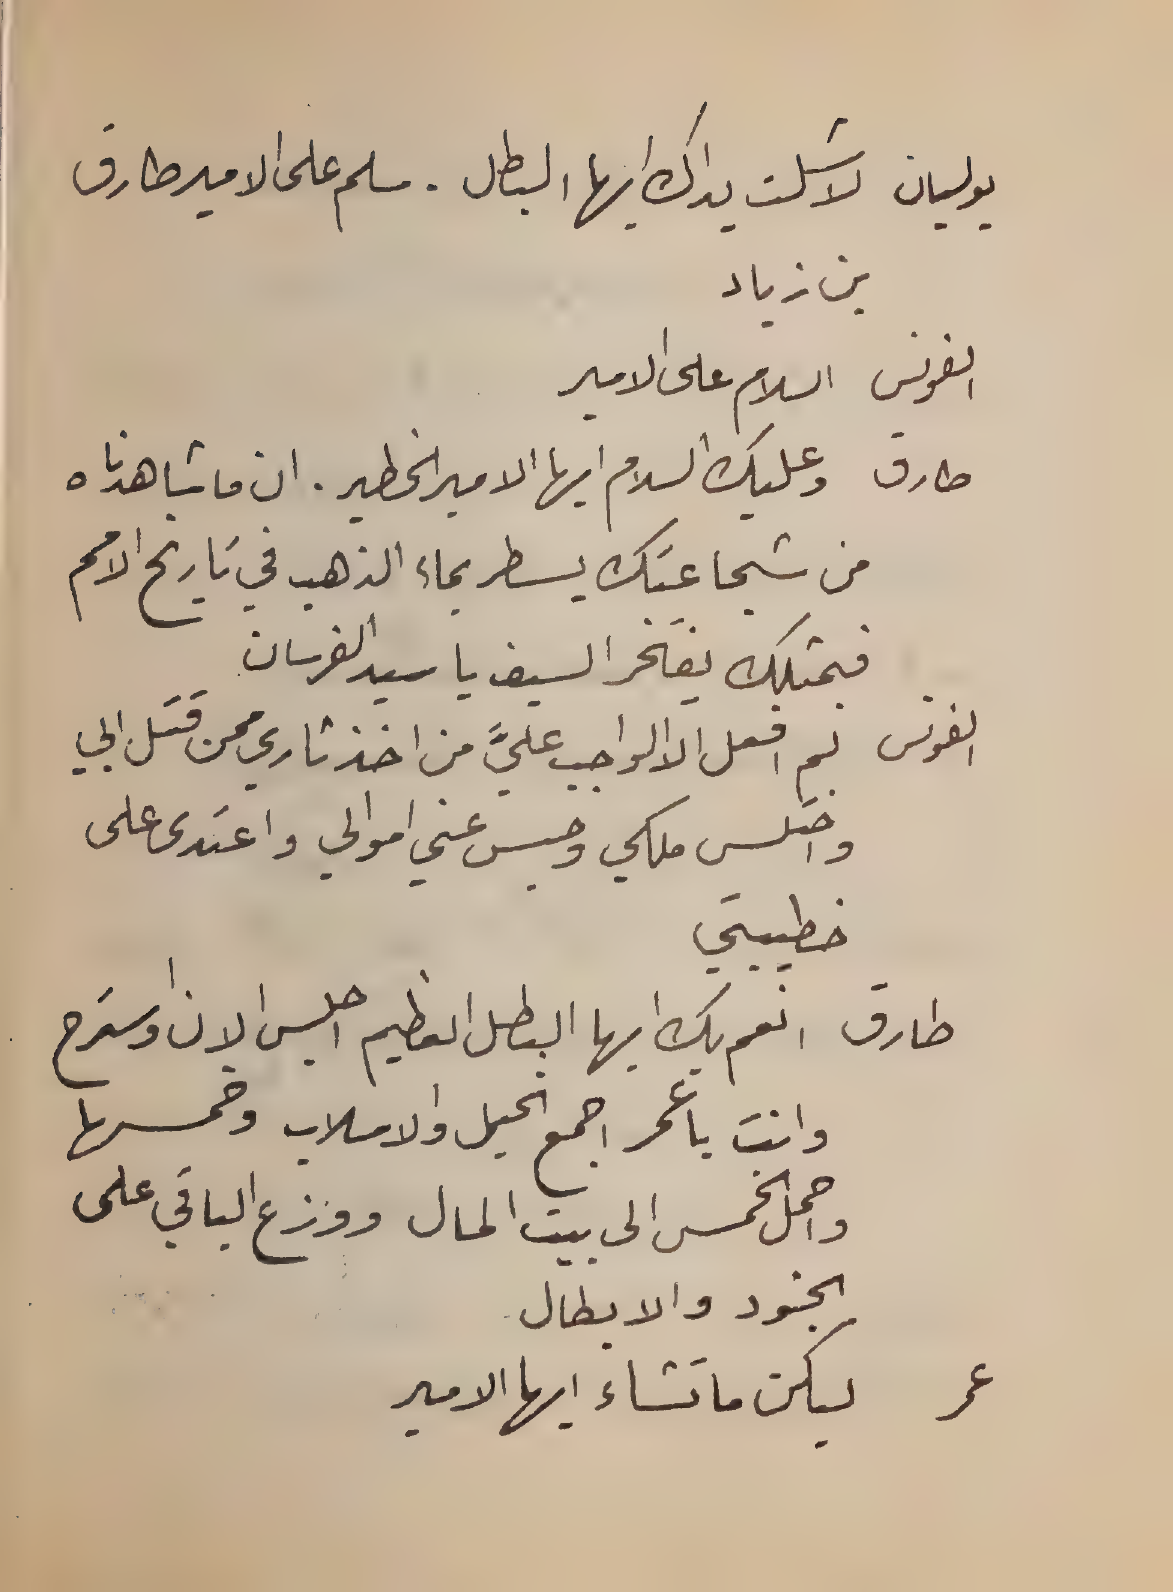 يوليان لا شلت يداك ايها البطل . سلم على الامير طارق
بن زياد
الفونس السلام على الامير
طارق وعليك السلام ايها الامير الخطير . ان ما شاهدناه
من شجاعتك يسطر بماء الذهب في تاريخ الامم
فبمثلك يفتخر السيف يا سيد الفرسان
الفونس لم افعل الا الواجب عليَّ من اخذ ثاري ممن قتل ابي
واختلس ملكي وحبس عني اموالي واعتدى على
خطيبتي
طارق انعم بك ايها البطل العظيم اجلس الان واسترح
وانت يا عمر اجمع الخيل والاسلاب وخمسها
واحمل الخمس الى بيت المال ووزع الباقي على
الجنود والابطال
عمر ليكن ما تشاء ايها الامير